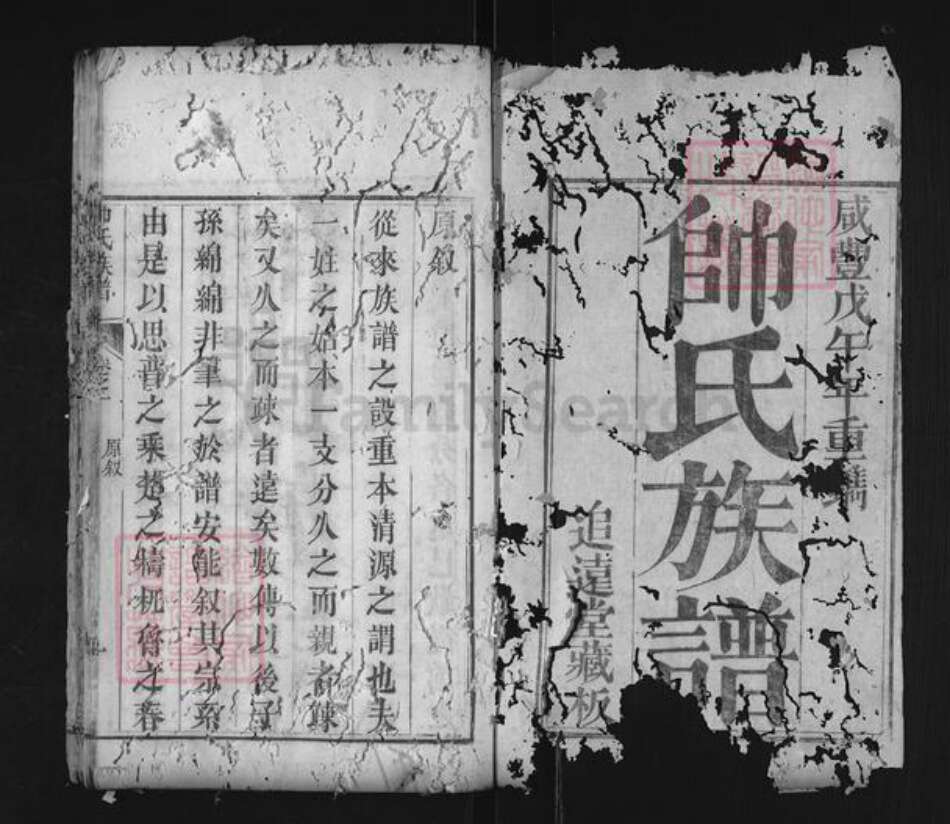 咸豐戊午年重鐫
帥氏族譜
追遠堂藏板
原叙
從來族譜之設重本清源之謂也夫
一姓之始本一支分久之而親者疎
矣又久之而疎者遠矣數傳以後子
孫綿綿非筆之於譜安能叙其宗系
由是以思晋之乘楚之檮杌魯之春
帥氏族譜
原叙
FamilySearch